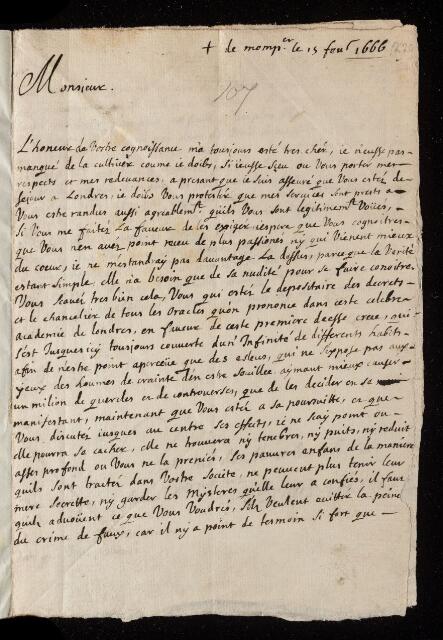 + de momp.er le 15 fevr 1666
107
Monsieur.
L'honeur de vostre cognoissance m'a tousjours esté tres cher, ie n'eusse pas
manqué de la cultiver comme ie doibs, si ieusse sçeu ou vous porter mes
respects et mes redevances, a present que ie suis asseuré que vous estes de
sejour a Londres, ie doibs vous protester que mes services sont prests a
vous estre randus aussi agreablemt. quils vous sont legitimemt. voüés,
si vous me faites la faveur de les exiger iespere que vous cognoitres
que vous n'en aves point receu de plus passionés ny qui vienent mieux
du coeur, ie ne m'estandray pas davantage la dessus, parce que la verité
estant simple, elle n'a besoin que de sa nudité pour se faire conoitre.
vous scaves tres bien cela, vous qui estes le depositaire des decrets
et le chancelier de tous les oracles quon prononce dans ceste celebre
academie de londres, en faveur de ceste premiere deesse cree, qui
s'est jusques icy tousjours couverte d'un infinité de differents habits
afin de n'estre point aperceüe que des esleus, qui ne s'expose pas aux
yeux des hommes de crainte d'en estre souillée aymant mieux causer
un milion de querelles et de controverses, que de les decider en se
manifestant, maintenant que vous estes a sa poursuitte, et que
vous discutes jusques au centre ses effets, ie ne sçay point ou
elle pourra se cacher, elle ne trouvera ny tenebres, ny puits, ny reduit
asses profond ou vous ne la preniés, ses pauvres enfans de la maniere
quils sont traités dans vostre societe, ne peuvent plus tenir leur
mere secrette, ny garder les mysteres qu'elle leur a confiés, il faut
quils advoüent ce que vous voudrés, s'ils veulent eviter la peine
du crime de faux, car il n'y a point de tesmoin si fort que